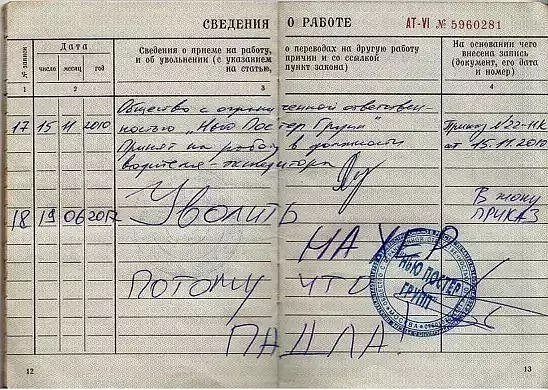 СВЕДЕНИЯ О РАБОТЕ
AT-VI № 5960281
№ записи
Дата
число месяц год
Сведения о приеме на работу, о переводах на другую работу
и об увольнении (с указанием причин и со ссылкой
на статью, пункт закона)
На основании чего
внесена запись
(документ, его дата
и номер)
1 2 3 4
Общество с ограниченной ответствен-
ностью "Нью Постер Групп"
17 15 11 2010 Принят на работу в должности
водителя-экспедитора
Приказ №22-НК
от 15.11.2010
18 19 06 2017 Уволить
В жопу
ПРИКАЗ
НА ХЕР
ПОТОМУ ЧТО
ПАДЛА!
НЬЮ ПОСТЕР
ГРУПП
МОСКВА
12 13